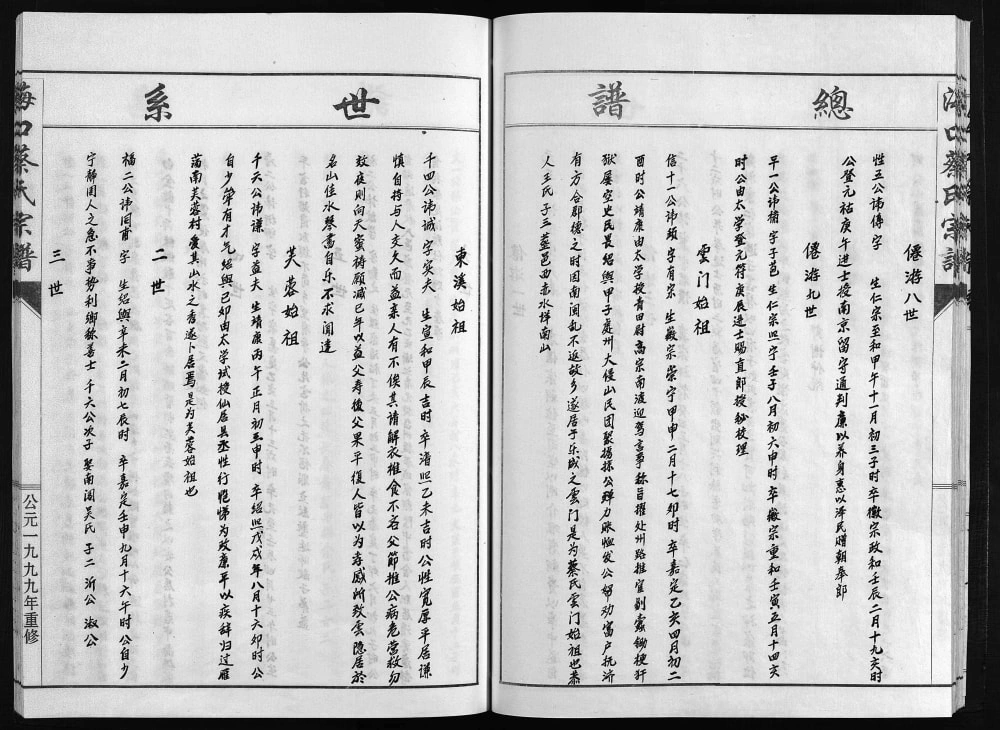 總譜
僊游八世
性五公讳傳字 生仁宗至和甲午十一月初三子时卒徽宗政和壬辰二月十九亥时
公登元祐庚午进士授南京留守通判廉以养身惠以泽民赠朝奉郎
僊游九世
早一公讳櫛字子苞 生仁宗熙宁壬子八月初六申时卒徽宗重和壬寅五月十四亥
时公由太学登元符庚辰进士赐直郎授秘校理
雲门始祖
信十一公讳頤字有宗 生徽宗崇宁甲申二月十七卯时 卒嘉定乙亥四月初二
酉时公靖康由太学授青田尉高宗南渡迎驾言事称旨擢处州路推官剔蠹锄梗犴
狱屡空史民畏绍興甲子处州大侵山民团聚揚探公殚力赈恤发公帑劝富户抚济
有方合郡德之时因南闽乱不返故乡遂居于乐成之雲门是为蔡氏雲门始祖也恭
人王氏子三 葢邑西赤水垟南山
世系
東溪始祖
千四公讳诚 字实夫 生宣和甲辰吉时 卒湻熙乙未吉时公性宽厚平居谦
慎自持与人交久而益亲人有不俟其请解衣推食不吝父節推公病危营救勿
效夜则向天蜜祷願减己年以益父寿後父果平復人皆以为孝感所致雲隐居於
名山佳水琴書自乐不求闻達
芙蓉始祖
千六公讳谦 字益夫 生靖康丙午正月初三申时 卒绍熙戊戍年八月十六卯时公
自少犖有才气绍興己卯由太学试授仙居县丞性行恺悌为政廉平以疾辞归过雁
荡南芙蓉村爱其山水之秀遂卜居焉是为芙蓉始祖也
二世
福二公讳同甫 字 生绍興辛未二月初七辰时 卒嘉定壬申九月十六午时公自少
宁静周人之急不事势利鄉稱善士 千六公次子 娶南阁吴氏 子二 沂公 淑公
三世
海口蔡氏宗譜
公元一九九九年重修